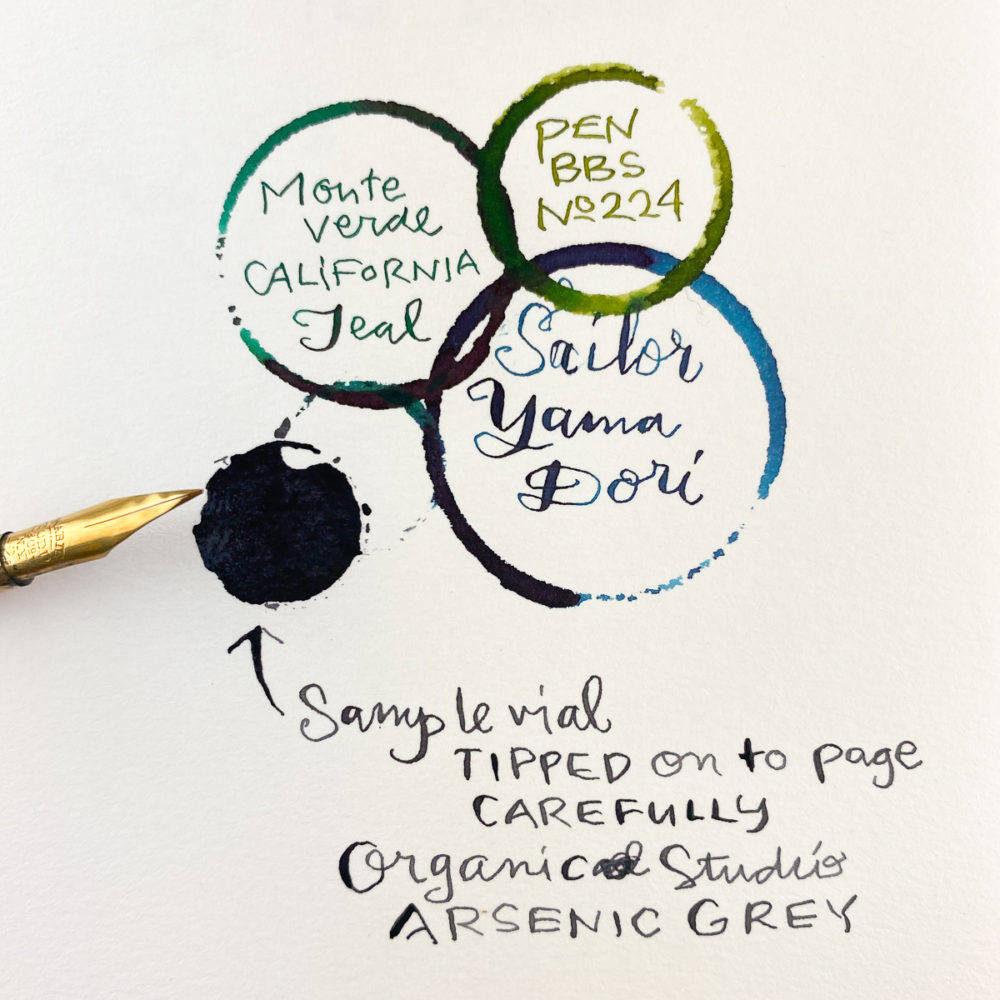 Monte
verde
CALIFORNIA
Teal
PEN
BBS
Nº224
Sailor
Yama
Dori
Sample vial
TIPPED on to page
CAREFULLY
Organic Studio
ARSENIC GREY